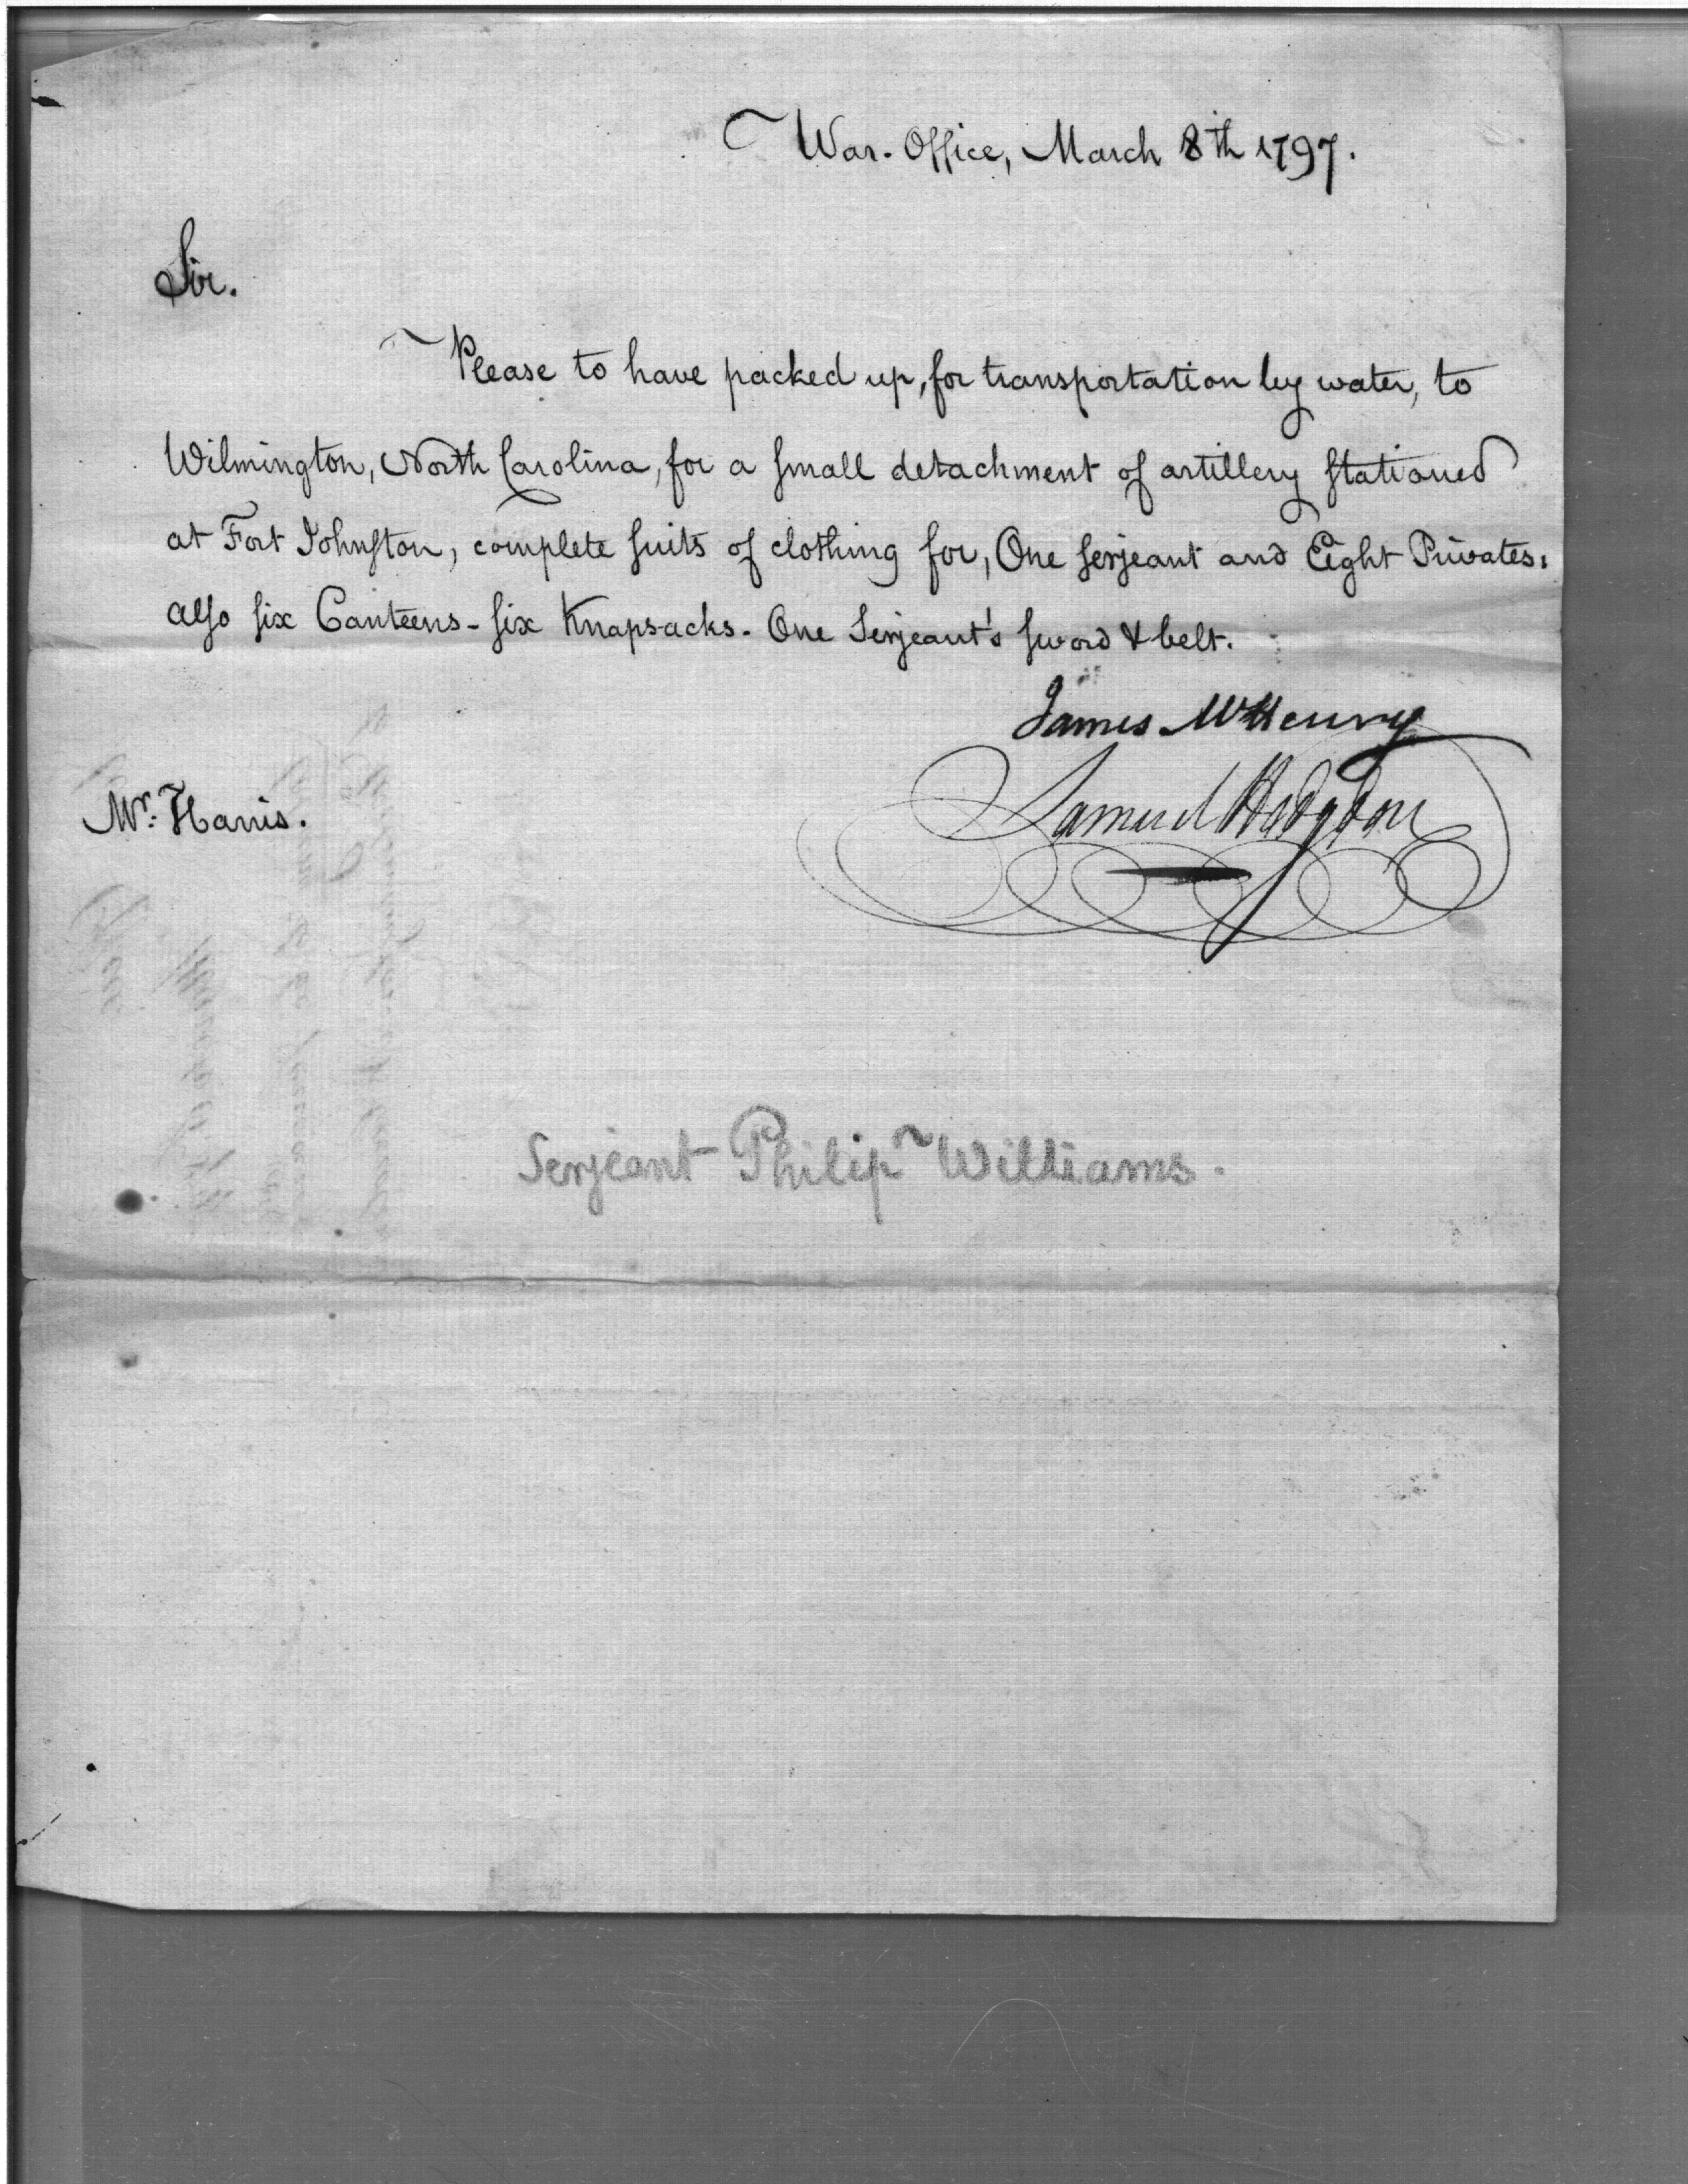 War-Office, March 8th 1797.
Sir.
Please to have packed up, for transportation by water, to
Wilmington, North Carolina, for a small detachment of artillery stationed
at Fort Johnston, complete suits of clothing for, One serjeant and Eight Privates.
also six Canteens - six Knapsacks. One Serjeant's sword & belt.
James McHenry
Samuel Hodgdon
Mr. Harris.
Serjeant Philip Williams.